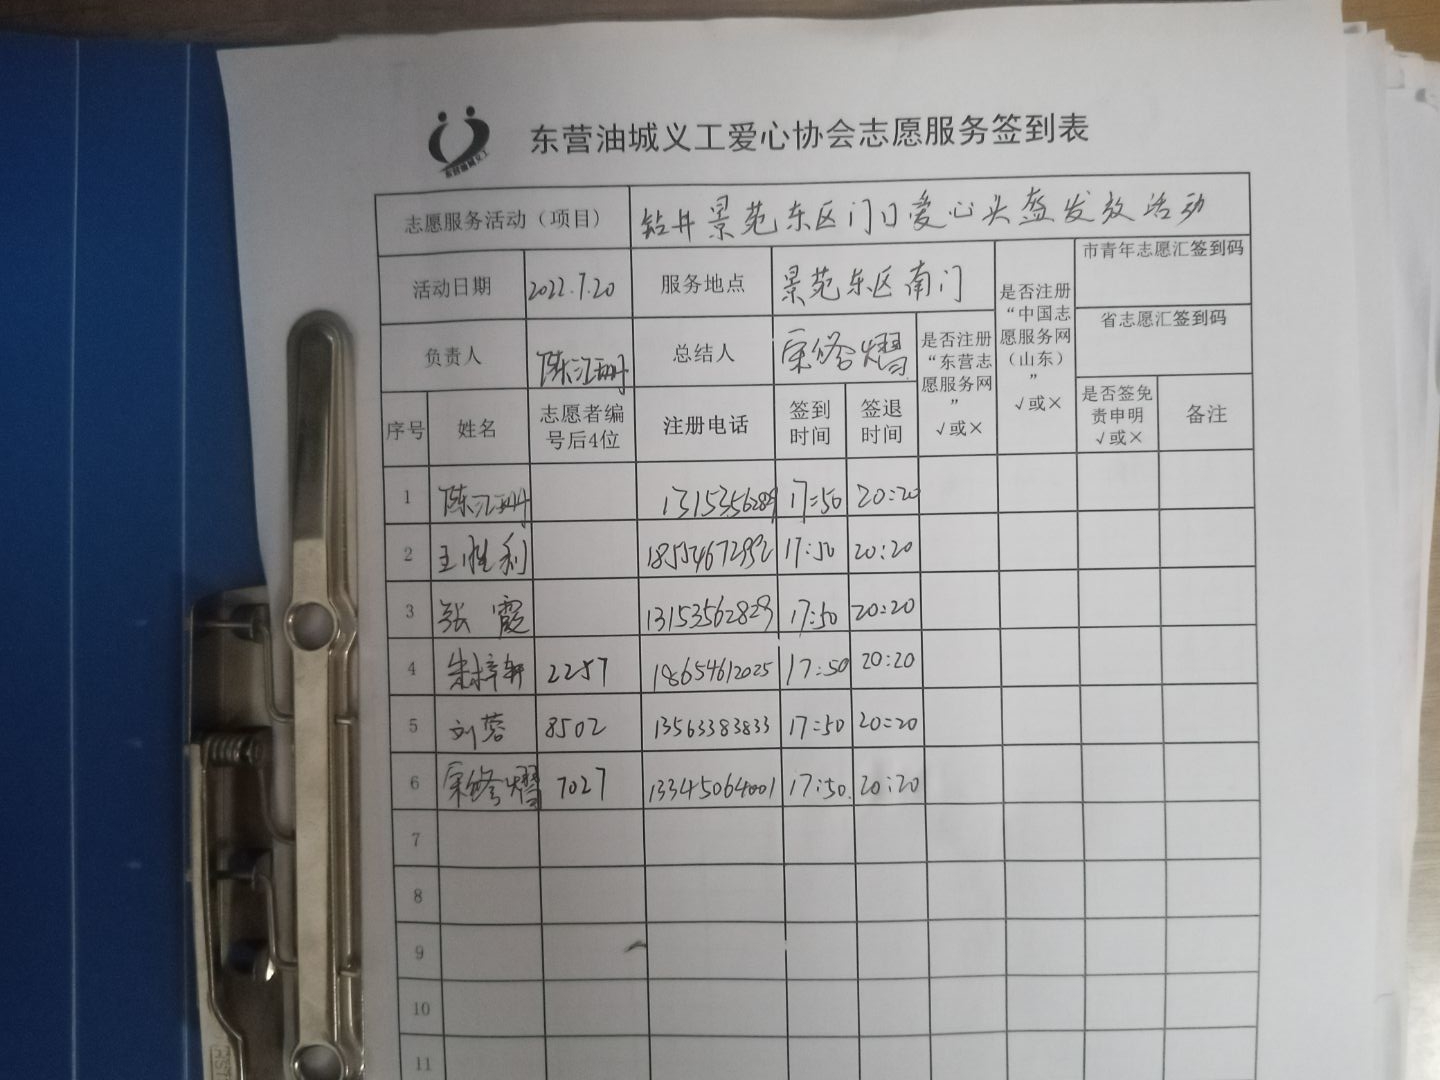 东营油城义工
东营油城义工爱心协会志愿服务签到表
志愿服务活动（项目） 钻井景苑东区门口爱心头盔发放活动
活动日期 2022.7.20 服务地点 景苑东区南门 是否注册“中国志愿服务网（山东）” √或× 市青年志愿汇签到码
负责人 陈江珊 总结人 是否注册“东营志愿服务网” √或× 省志愿汇签到码
序号 姓名 志愿者编号后4位 注册电话 签到时间 签退时间 是否签免责申明 √或× 备注
1 陈江珊 17:50 20:20
2 王胜利 17:50 20:20
3 张霞 13153562829 17:50 20:20
4 朱梓轩 2257 18654612025 17:50 20:20
5 刘蓉 8502 13563383833 17:50 20:20
6 7027 13345064001 17:50 20:20
7
8
9
10
11